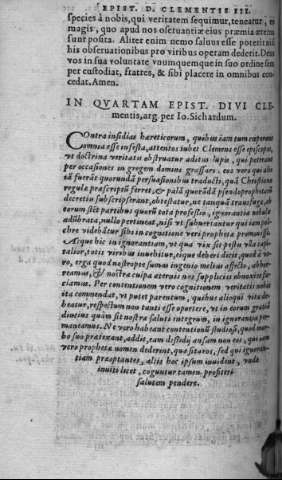 EPIST. D. CLEMENTIS III.
species à nobis, qui veritatem sequimur, teneatur,
magis, quo apud nos obseruantiæ eius præmia æterna
sunt posita. Aliter enim nemo saluus esse poterit, nisi
his obseruationibus pro viribus operam dederit. Deus
vos in sua voluntate vnumquemque in suo ordine sem
per custodiat, fratres, & sibi placere in omnibus con
cedat. Amen.
IN QVARTAM EPIST. DIVI CLE-
mentis, arg. per Io. Sichardum.
Contra insidias hæreticorum, quibus iam tum
omnia esse infesta, attentos iubet Clemens esse episcopos,
vt doctrina veritatis obstruatur aditus lupis, qui
per occasiones in gregem domini grassari: eos vero qui
regula præscripti ferret, & palã quærẽdã
decretis subscripserant, obtestatur, ne tanquã transfugæ, ab
eorum stẽt partibus quorũ tota professio, ignorantia
adobruta, nullo pertineat, nisi vt subuertantur qui iam
chre videbãtur sibi in cognitione veri prophetæ promouisse.
Atque hic in ignorantiam, vt qua vix sit pestis vlla
talior, totis viribus inuehitur, eique deberi dicit, quod à
vero, erga quod nos propte sumus ingenio melius affecto, abhor
reamus, & nostra culpa æternis nos supplicijs obnoxios fa-
ciamus. Per contentionem vero cognitionem veritatis nobis
ita commendat, vt putet parentum, quibus alioqui vita de-
beatur, respectum non tanti esse oportere, vt in eorum gratiã
diutius quàm sit nostræ saluti integrum, in ignorantia per-
maneamus. Ne vero habeant contentionũ studiosi, quod
bo suo prætexant, addit, eam dissidij ansam non eos, qui
vero prophetæ nomen dederint, quæsituros, sed qui ignoran-
tiam præoptantes, alijs hoc ipsum inuident, vnde
inuiti licet, coguntur tamen profiteri
salutem pendere.